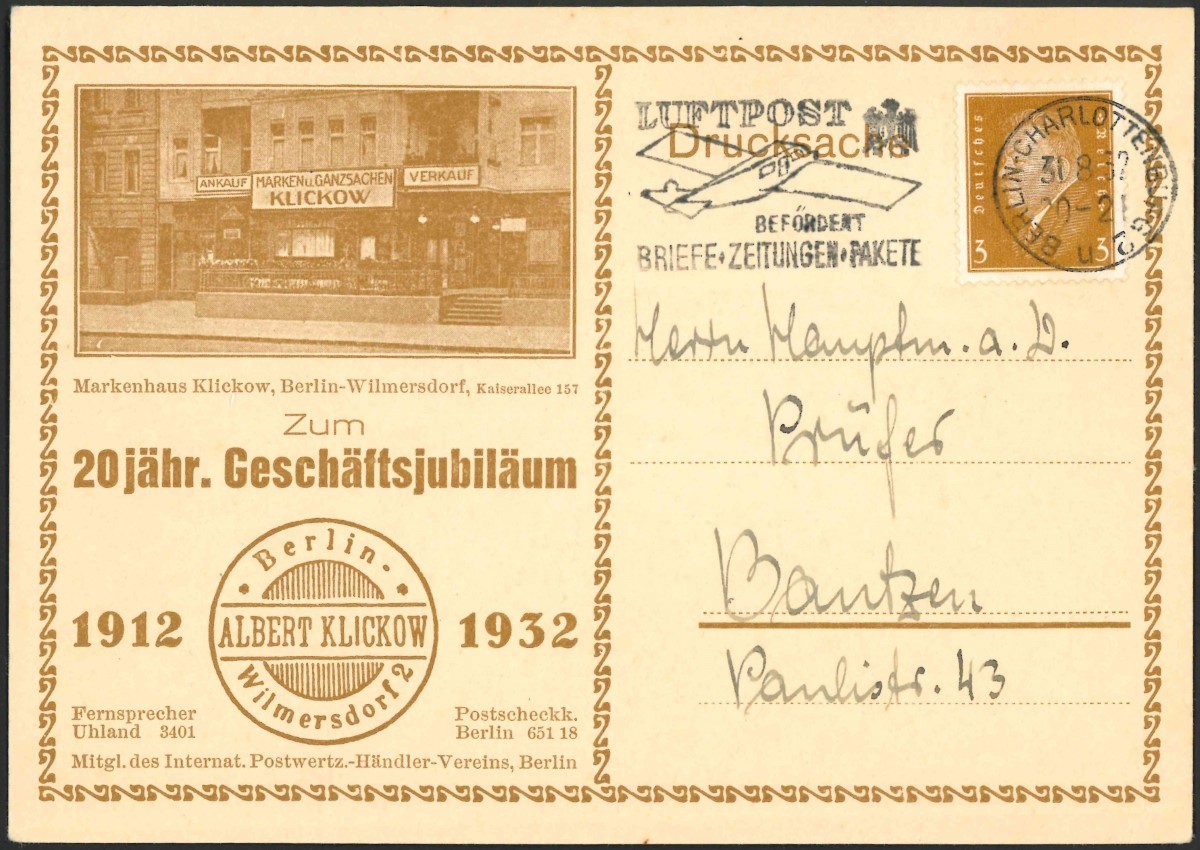 ANKAUF
MARKEN u. GANZSACHEN
KLICKOW
VERKAUF
Markenhaus Klickow, Berlin-Wilmersdorf, Kaiserallee 157
Zum
20jähr. Geschäftsjubiläum
1912
Berlin-
ALBERT KLICKOW
Wilmersdorf 2
1932
Fernsprecher
Uhland 3401
Postscheckk.
Berlin 651 18
Mitgl. des Internat. Postwertz.-Händler-Vereins, Berlin
LUFTPOST
Drucksache
BEFÖRDERT
BRIEFE•ZEITUNGEN•PAKETE
Deutsches Reich
3 3
BERLIN-CHARLOTTENBURG 2
31.8.32
20-21
u
Herrn Hauptm. a. D.
Prüfer
Bautzen
Paulistr. 43